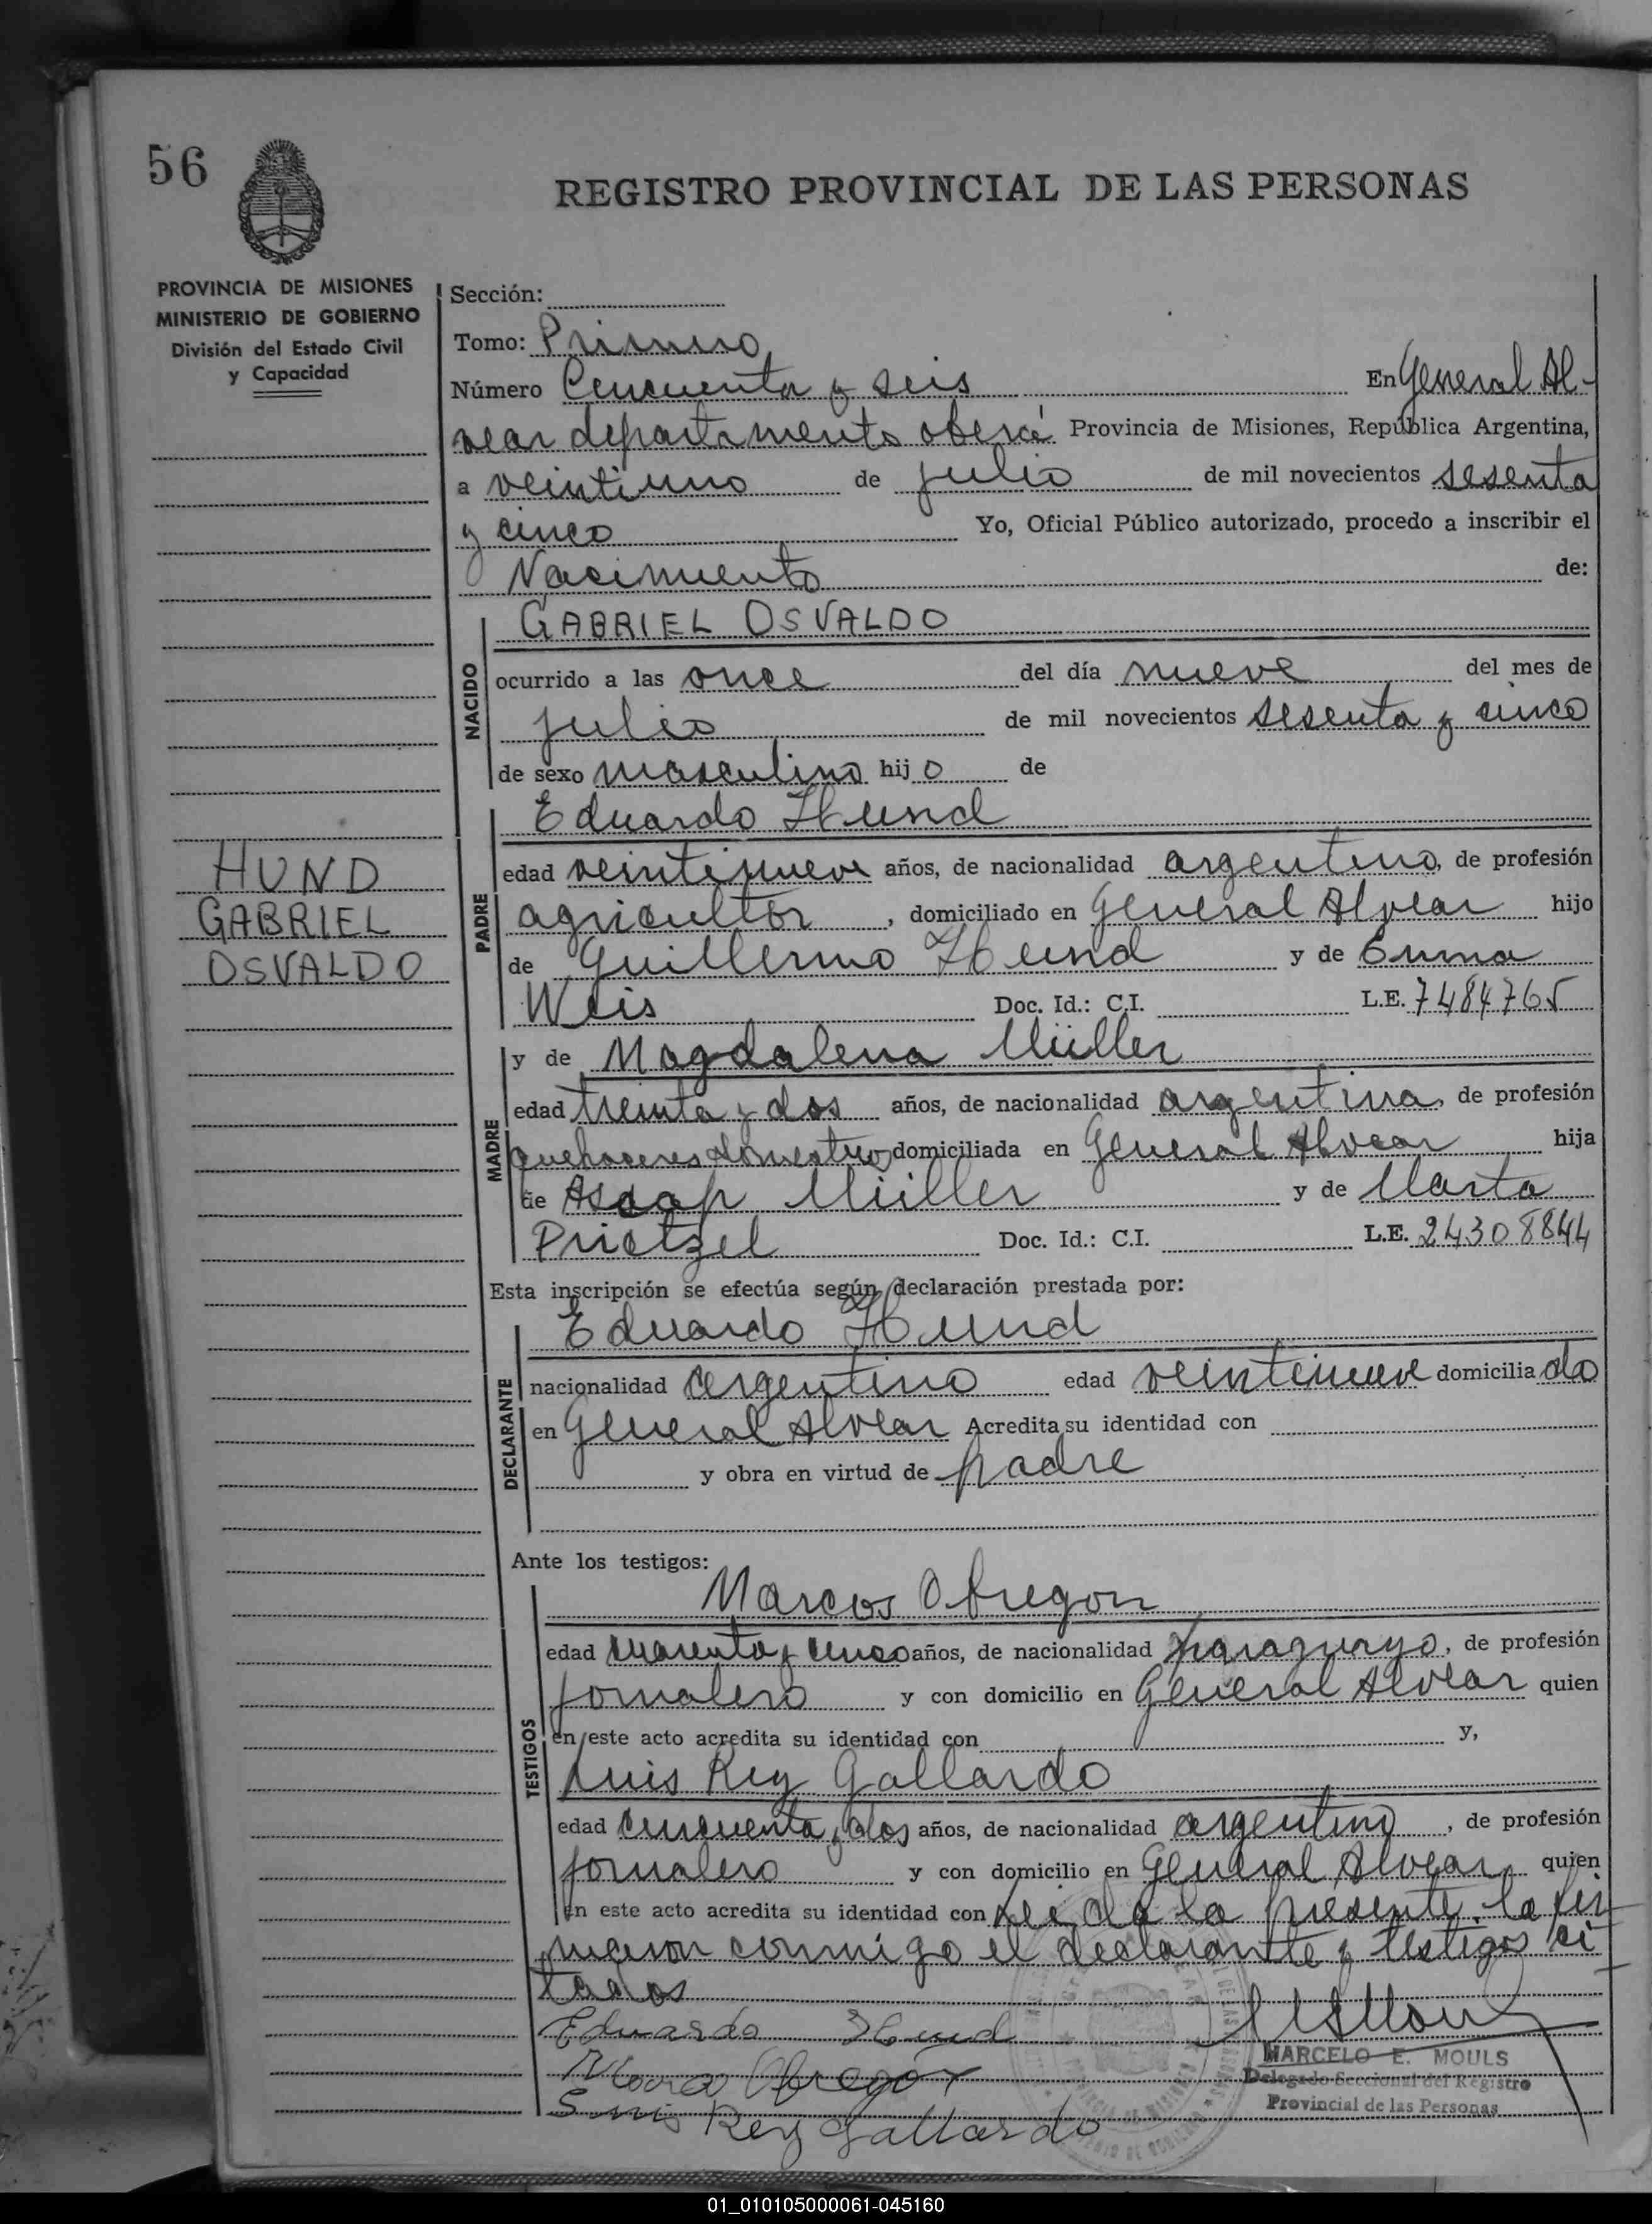 56
REGISTRO PROVINCIAL DE LAS PERSONAS
PROVINCIA DE MISIONES
MINISTERIO DE GOBIERNO
División del Estado Civil
y Capacidad
Sección:
Tomo: Primero
Número Cincuenta y seis En General Al-
vear departamento oberá Provincia de Misiones, República Argentina,
a veintiuno de julio de mil novecientos sesenta
y cinco Yo, Oficial Público autorizado, procedo a inscribir el
Nacimiento de:
GABRIEL OSVALDO
NACIDO
ocurrido a las once del día nueve del mes de
julio de mil novecientos sesenta y cinco
de sexo masculino hijo de
Eduardo Hund
HUND
GABRIEL
OSVALDO
PADRE
edad veintinueve años, de nacionalidad argentino, de profesión
agricultor, domiciliado en General Alvear hijo
de Guillermo Hund y de Emma
Weis Doc. Id.: C.I. L.E. 7484765
y de Magdalena Müller
MADRE
edad treinta y dos años, de nacionalidad argentina, de profesión
quehaceres domesticos domiciliada en General Alvear hija
de Müller y de Marta
Prietzel Doc. Id.: C.I. L.E. 24308844
Esta inscripción se efectúa según declaración prestada por:
Eduardo Hund
DECLARANTE
nacionalidad argentino edad veintinueve domiciliado
en General Alvear Acredita su identidad con
y obra en virtud de padre
Ante los testigos:
Marcos Obregon
TESTIGOS
edad cuarenta y cinco años, de nacionalidad paraguayo, de profesión
jornalero y con domicilio en General Alvear quien
en este acto acredita su identidad con y,
Luis Rey Gallardo
edad cincuenta y dos años, de nacionalidad argentino, de profesión
jornalero y con domicilio en General Alvear quien
en este acto acredita su identidad con Leida la presente, la fir
maron conmigo el declarante y testigos ci
tados
Eduardo Hund
Obregón
Rey Gallardo
MARCELO E. MOULS
Delegado Seccional del Registro
Provincial de las Personas
01_010105000061-045160